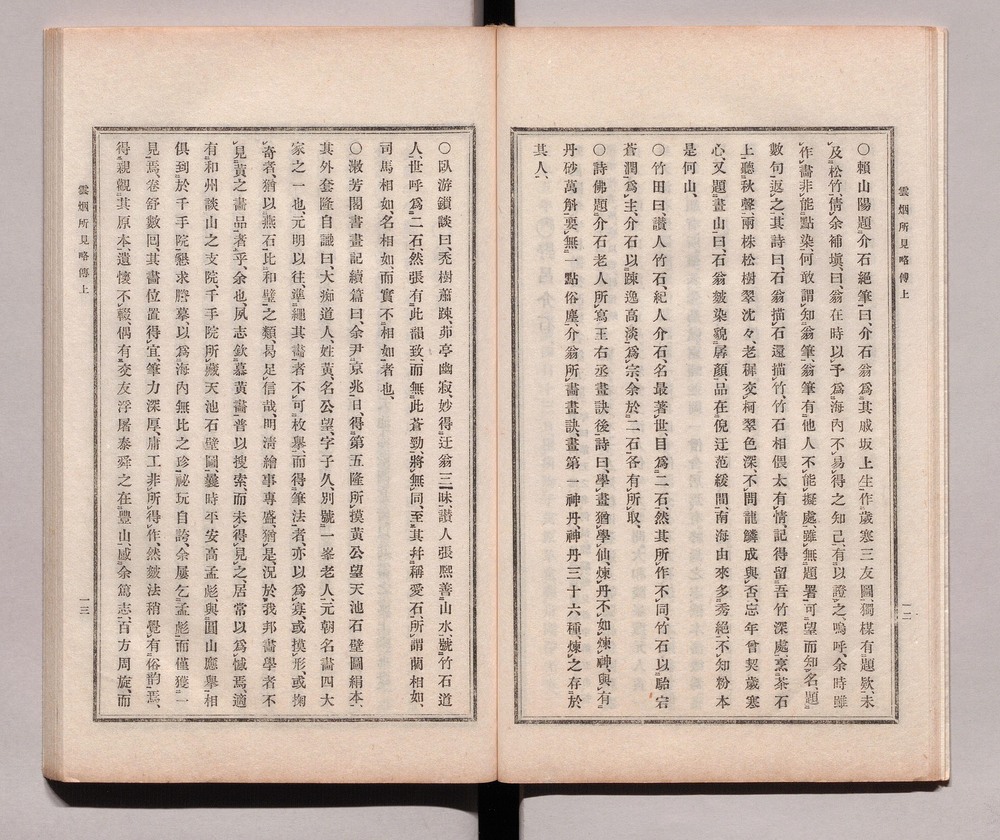 雲烟所見略傳上
一二
○賴山陽題介石絕筆曰、介石翁爲其戚坂上生作歲寒三友圖、獨楳有題欵、未
及松竹、倩余補塡、曰、翁在時以予爲海內不易得之知己、有以證之、嗚呼、余時雖
作畵非能點染、何敢謂知翁筆、翁筆有他人不能擬處、雖無題署、可望而知名、題
數句返之、其詩曰石翁描石還描竹、竹石相偎太有情、記得留吾竹深處、烹茶石
上聽秋聲、兩株松樹翠沈々、老穉交柯翠色深、不問龍鱗成與否、忘年曾契歲寒
心、又題畫山曰、石翁皴染貌孱顏、品在倪迂范緩間、南海由來多秀絕、不知粉本
是何山、
○竹田曰、讃人竹石、紀人介石、名最著世、目爲二石、然其所作不同、竹石以駘宕
蒼潤爲主、介石以踈逸高淡爲宗、余於二石各有所取、
○詩佛題介石老人所寫王右丞畫訣後詩曰、學畫猶學仙、煉丹不如煉神、與有
丹砂萬斛、要無一點俗塵、介翁所畵畫訣、畫第一神丹、神丹三十六種、煉之存於
其人、
○臥游鎖談曰、禿樹蕭踈茆亭幽寂、妙得迂翁三昧、讃人張熙善山水、號竹石道
人、世呼爲二石、然張有此韻致、而無此蒼勁、將無同、至其幷稱愛石、所謂藺相如、
司馬相如、名相如而實不相如者也、
○漱芳閣書畫記續篇曰、余尹京兆日、得第五隆所摸黃公望天池石壁圖絹本、
其外套隆自識曰、大痴道人、姓黃、名公望、字子久、別號一峯老人、元朝名畵四大
家之一也、元明以往、準繩其畵者不可枚擧、而得筆法者、亦以爲寡、或摸形或掬
奇者、猶以燕石比和璧之類、曷足信哉、明淸繪事專盛、猶是、況於我邦畵學者不
見黃之畵品者乎、余也、夙志欽慕黃畵普以搜索、而未得見之、居常以爲憾焉、適
有和州談山之支院、千手院所藏天池石壁圖、曩時平安高孟彪、與圓山應擧相
俱到於千手院懇求謄摹、以爲海內無比之珍祕玩自誇、余屢乞孟彪、而僅獲一
見焉、卷舒數回、其畵位置得宜、筆力深厚、庸工非所得作、然皴法稍覺有俗韵焉、
得親觀其原本、遣懷不輟、偶有交友浮屠泰舜之在豐山、感余篤志、百方周旋、而
雲烟所見略傳上
一三